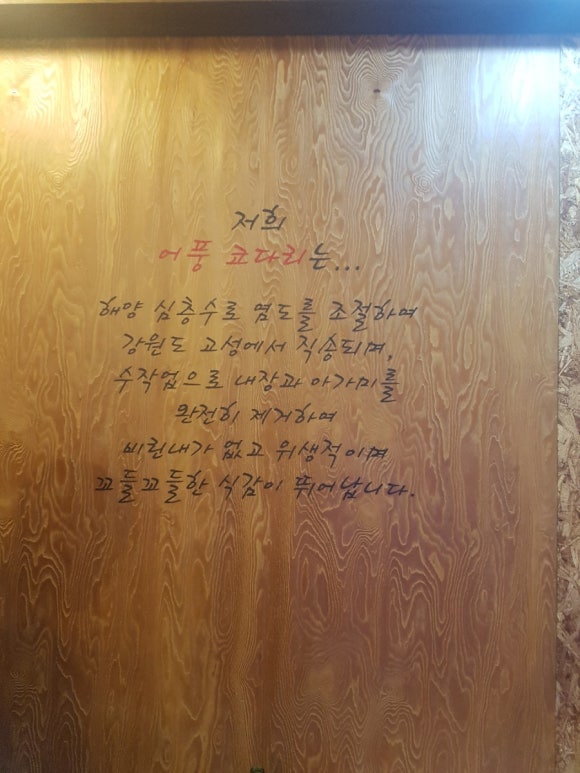 저희
어풍 코다리는...
해양 심층수로 염도를 조절하며
강원도 고성에서 직송되며,
수작업으로 내장과 아가미를
완전히 제거하며
비린내가 없고 위생적이며
꼬들꼬들한 식감이 뛰어납니다.